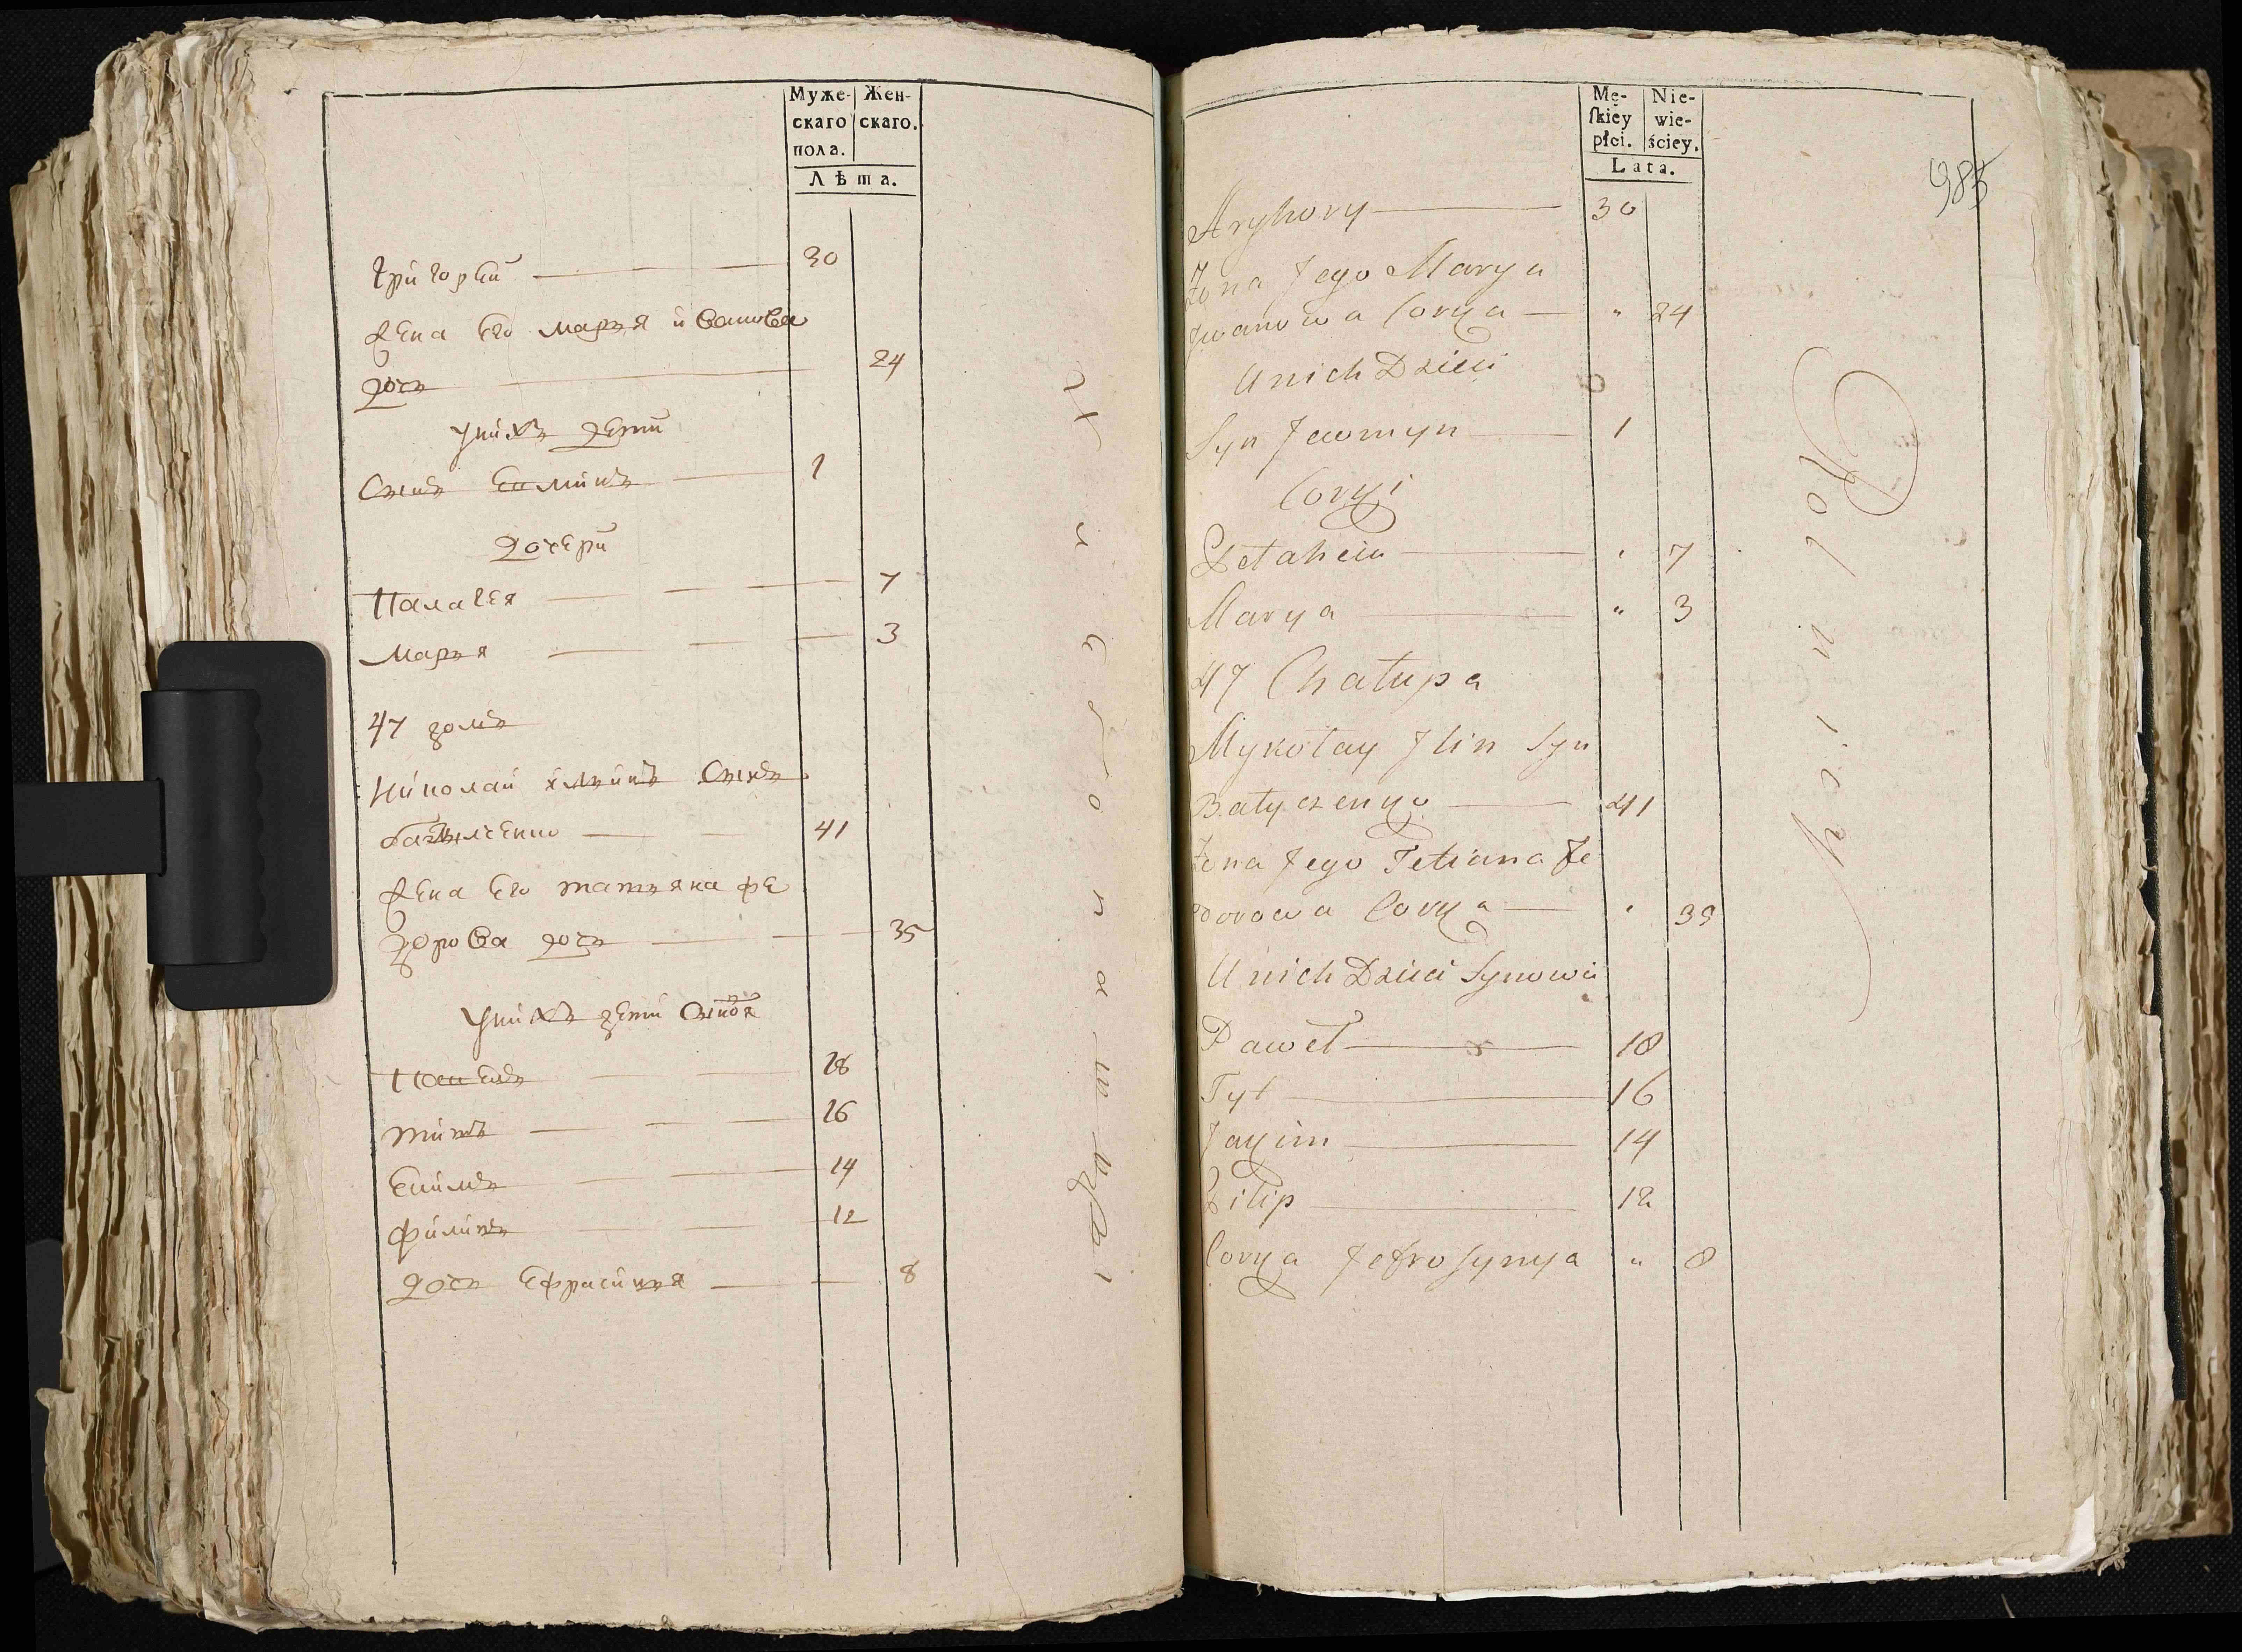 Муже- Жен-
скаго скаго.
пола.
Лѣта.
Григорей 30
Жена Его марья иванова
дочь 24
У нихъ дети
Сынъ 1
дочери
Палагея 7
Марья 3
47 домъ
Николай ильинъ Сынъ
41
Жена Его татьяна фе
дорова дочь 35
У нихъ дети
Павелъ 18
титъ 16
14
филипъ 12
дочь Ефрасинья 8
Mę- Nie-
ſkiey wie-
płci. ściey.
Lata.
985
Hryhory 30
Żona Jego Marya
Jwanowa Corka " 24
U nich Dzieci
Syn 1
Corki
Pełaheia " 7
Marya " 3
47 Chałupa
Mykołay Jlin Syn
Bałyczenko 41
Żona Jego Tetiana Fe
dorowa Corka " 35
U nich Dzieci Synowie
Paweł 18
Tyt 16
Jakim 14
Filip 12
Corka Jefrosynya " 8